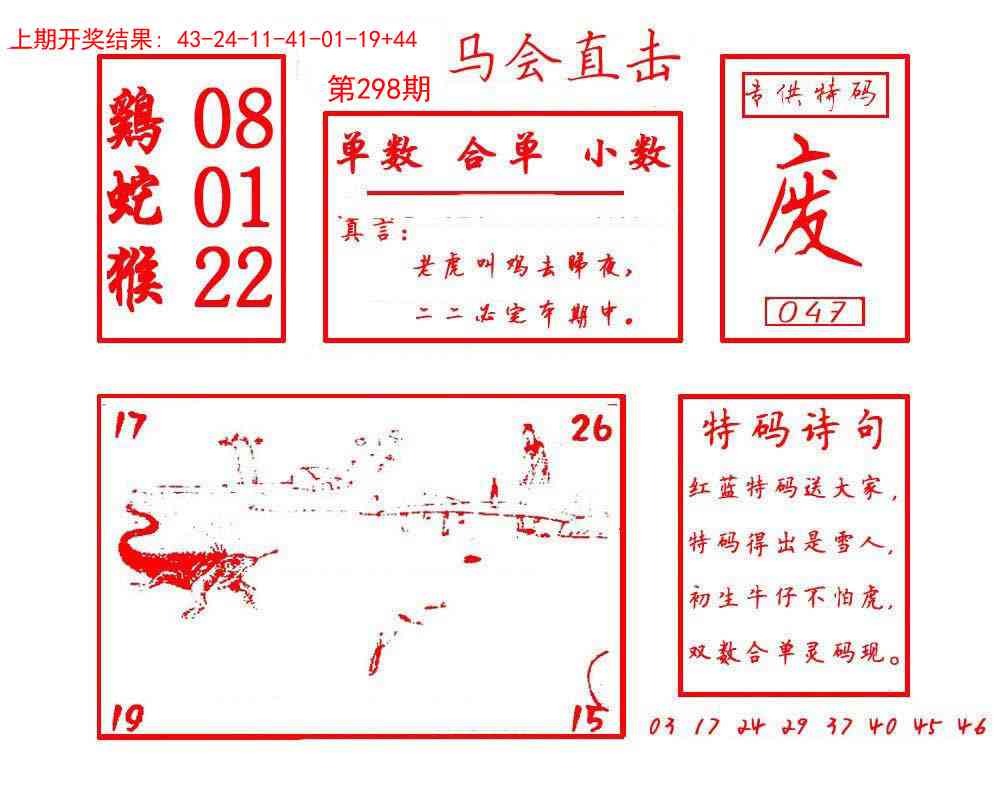 上期开奖结果: 43-24-11-41-01-19+44
马会直击
第298期
鷄 08
蛇 01
猴 22
单数 合单 小数
真言:
老虎叫鸡去睇夜,
二二必定本期中。
专供特码
废
047
17
26
19
15
特码诗句
红蓝特码送大家,
特码得出是雪人,
初生牛仔不怕虎,
双数合单灵码现。
03 17 24 29 37 40 45 46